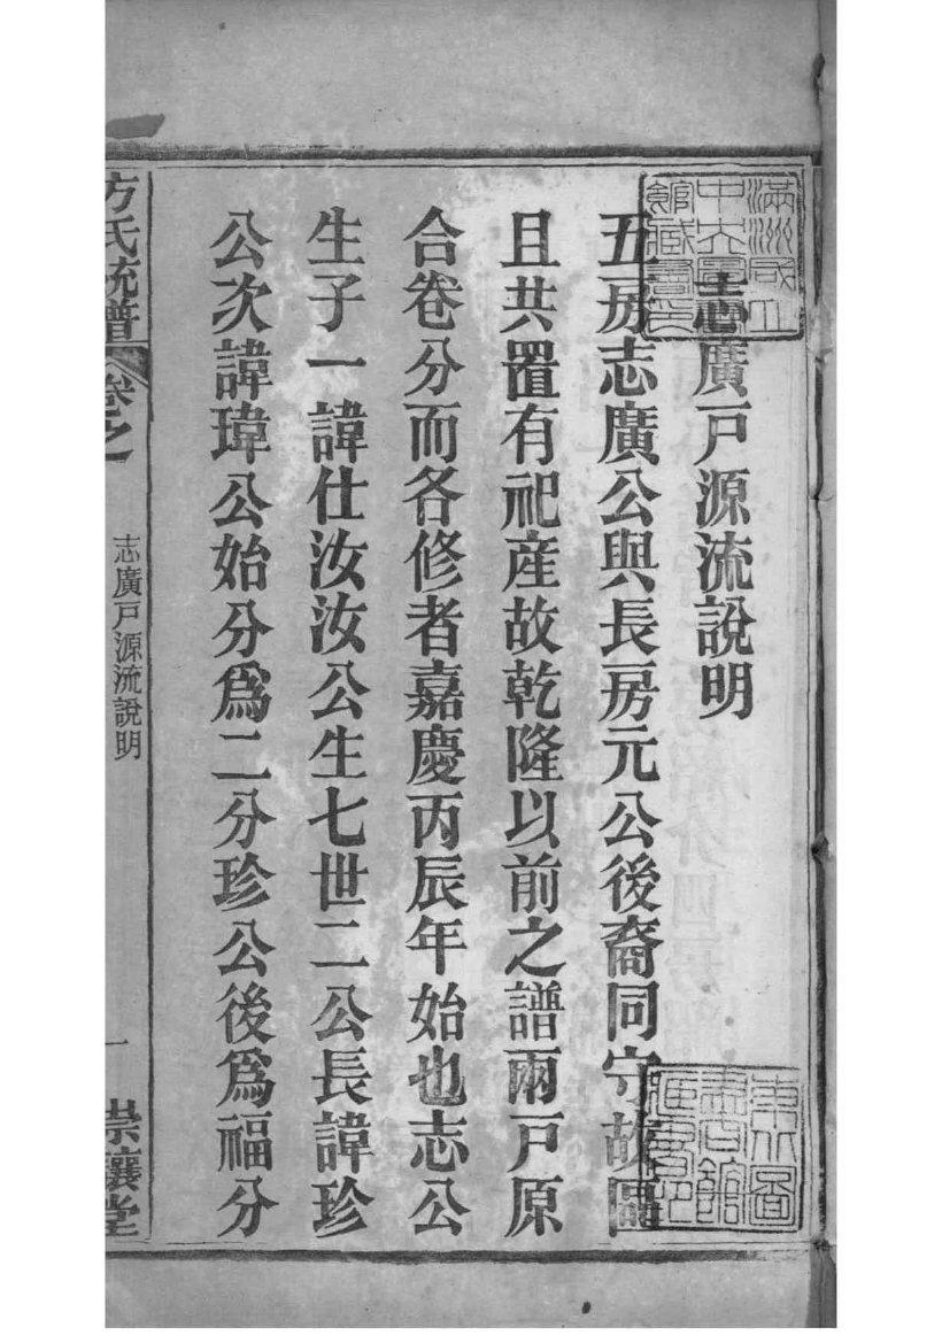 志廣戸源流說明
五房志廣公與長房元公後裔同守故區
且共置有祀產故乾隆以前之譜兩戸原
合卷分而各修者嘉慶丙辰年始也志公
生子一諱仕汝汝公生七世二公長諱珍
公次諱瑋公始分爲二分珍公後爲福分
方氏統譜
卷之
志廣戸源流說明
一
崇讓堂
滿洲國立
中央圖書
館藏書之